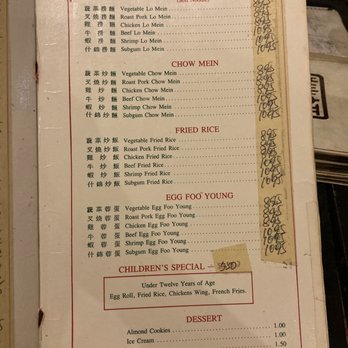 蔬菜撈麵 Vegetable Lo Mein
叉燒撈麵 Roast Pork Lo Mein
雞撈麵 Chicken Lo Mein
牛撈麵 Beef Lo Mein
蝦撈麵 Shrimp Lo Mein
什錦撈麵 Subgum Lo Mein 10.95
CHOW MEIN
蔬菜炒麵 Vegetable Chow Mein 8.95
叉燒炒麵 Roast Pork Chow Mein 8.95
雞炒麵 Chicken Chow Mein 8.95
牛炒麵 Beef Chow Mein 10.95
蝦炒麵 Shrimp Chow Mein 10.95
什錦炒麵 Subgum Chow Mein 10.95
FRIED RICE
蔬菜炒飯 Vegetable Fried Rice 8.95
叉燒炒飯 Roast Pork Fried Rice 8.95
雞炒飯 Chicken Fried Rice 8.95
牛炒飯 Beef Fried Rice 10.95
蝦炒飯 Shrimp Fried Rice 10.95
什錦炒飯 Subgum Fried Rice 10.95
EGG FOO YOUNG
蔬菜蓉蛋 Vegetable Egg Foo Young 8.95
叉燒蓉蛋 Roast Pork Egg Foo Young 8.95
雞蓉蛋 Chicken Egg Foo Young 8.95
牛蓉蛋 Beef Egg Foo Young 10.95
蝦蓉蛋 Shrimp Egg Foo Young 10.95
什錦蓉蛋 Subgum Egg Foo Young 10.95
CHILDREN'S SPECIAL —
Under Twelve Years of Age
Egg Roll, Fried Rice, Chickens Wing, French Fries.
DESSERT
Almond Cookies 1.00
Ice Cream 1.00
1.50